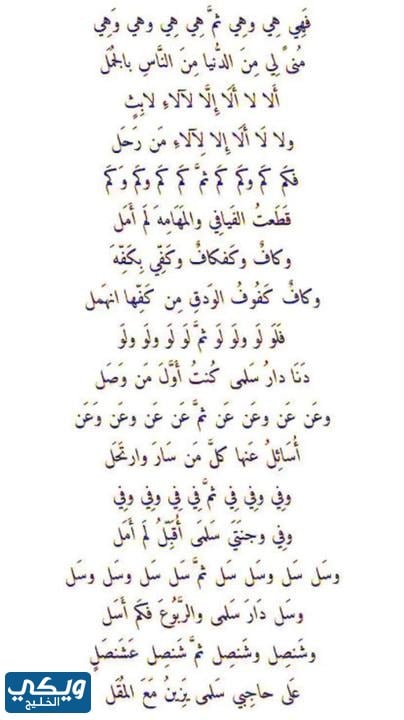 فَهِي هِي وهِي ثمَّ هِي هِي وهي وَهِي
مُنىً لِي مِنَ الدُّنيا مِنَ النَّاسِ بالجُمَل
أَلا لا أَلَا إِلَّا لآلاءِ لابِثٍ
ولا لَا أَلَا إلا لِآلاءِ مَن رَحَل
فكَم كَم وكَم كَم ثمَّ كَم كَم وكَم وَكَم
قَطَعتُ الفَيافِي والمَهَامِهَ لَم أَمَل
وكافٌ وكَفكافٌ وكَفِّي بِكَفِّهَ
وكافٌ كَفُوفُ الوَدقِ مِن كَفِّها انهَمل
فَلَو لَو ولَو لَو ثمَّ لَو لَو ولَو ولَو
دَنَا دارُ سَلمى كُنتُ أَوَّلَ مَن وَصَل
وعَن عَن وعَن عَن ثمَّ عَن عَن وعَن وَعَن
أُسَائِلُ عَنها كلَّ مَن سَارَ وارتَحَل
وفِي وفِي فِي ثمَّ فِي فِي وفِي وفِي
وفِي وجنَتَي سَلمَى أُقَبِّلُ لَم أَمَل
وسَل سَل وسَل سَل ثمَّ سَل سَل وسَل وسَل
وسَل دَارَ سَلمى والرَّبُوعَ فكَم أَسَل
وشَنصِل وشَنصِل ثمَّ شَنصِل عَشَنصَلٍ
عَلى حاجِبي سَلمى يَزِينُ مَعَ المُقَل
ويكي
الخليج